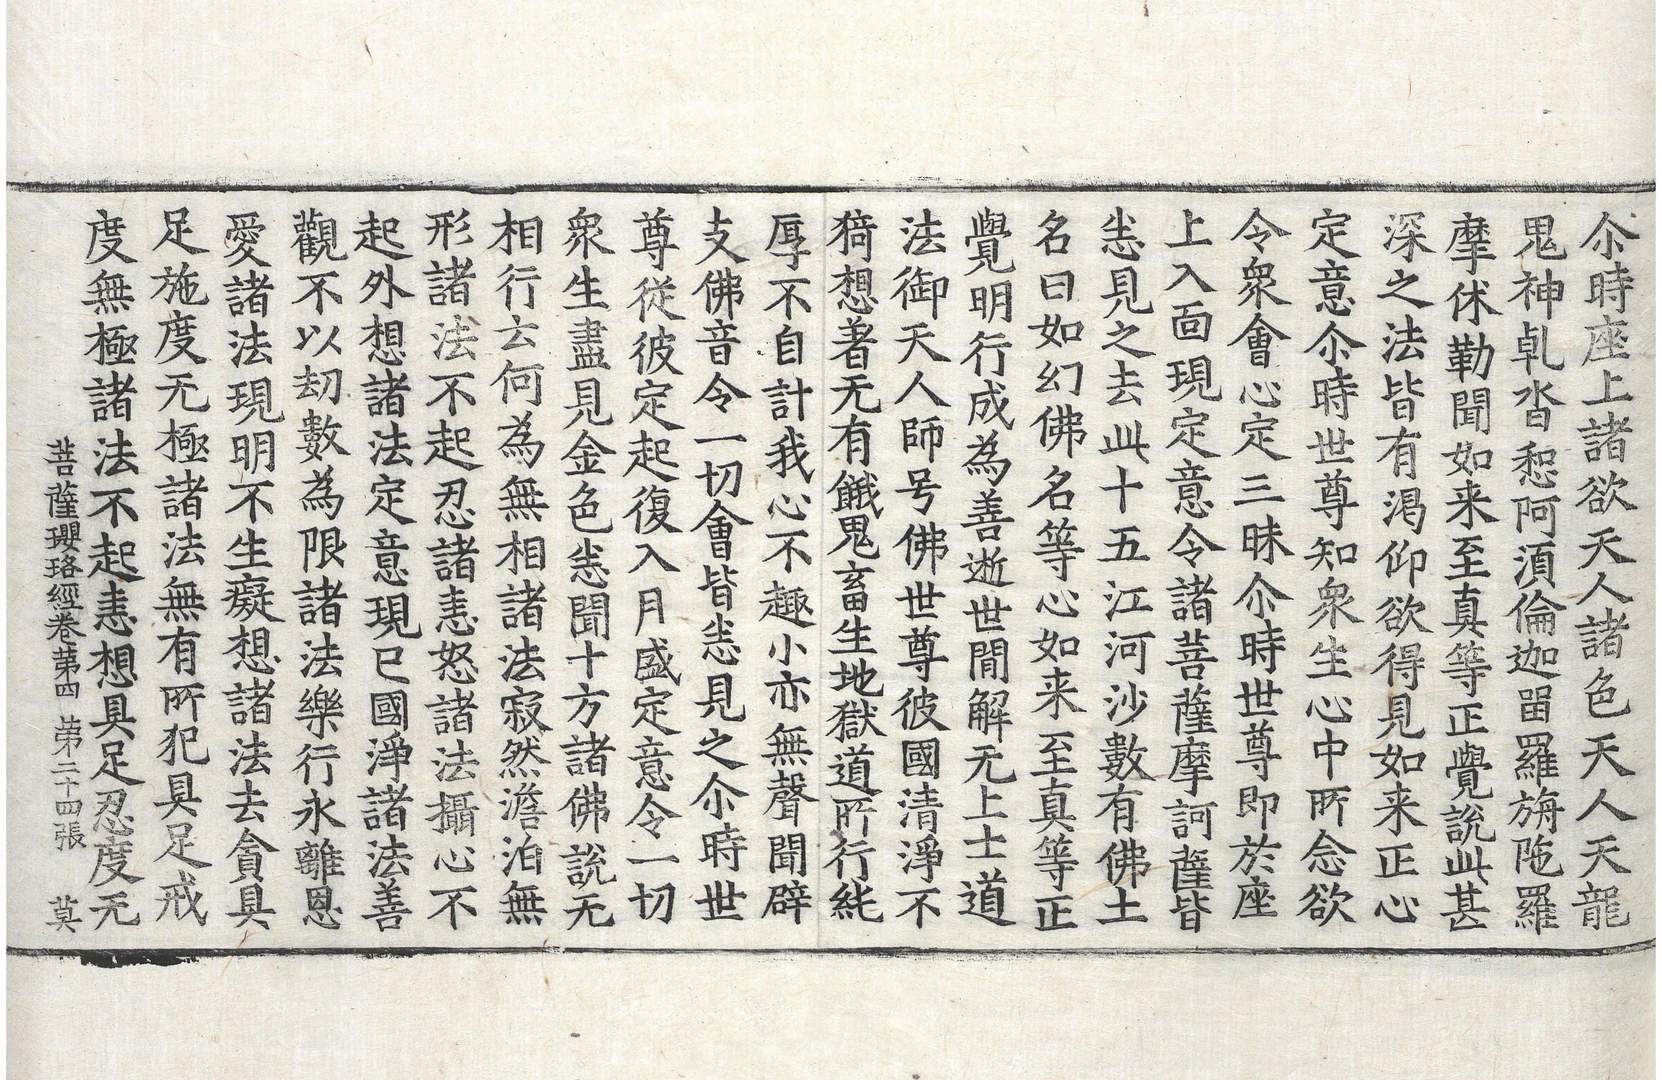 尒時座上諸欲天人諸色天人天龍
鬼神乹沓惒阿湏倫迦畱羅旃陁羅
摩休勒聞如来至真等正覺說此甚
深之法皆有渇仰欲得見如来正心
定意尒時世尊知衆生心中所念欲
令衆會心定三昧尒時世尊即於座
上入面現定意令諸菩薩摩訶薩皆
悉見之去此十五江河沙數有佛土
名曰如幻佛名等心如来至真等正
覺明行成為善逝世間解无上士道
法御天人師号佛世尊彼國清淨不
猗想著无有餓鬼畜生地獄道所行純
厚不自計我心不趣小亦無聲聞辟
支佛音令一切會皆悉見之尒時世
尊従彼定起復入月盛定意令一切
衆生盡見金色悉聞十方諸佛說无
相行云何為無相諸法寂然澹泊無
形諸法不起忍諸恚怒諸法攝心不
起外想諸法定意現已國淨諸法善
觀不以劫數為限諸法樂行永離恩
愛諸法現明不生癡想諸法去貪具
足施度无極諸法無有所犯具足戒
度無極諸法不起恚想具足忍度无
菩薩瓔珞經卷苐四　苐二十四張　莫